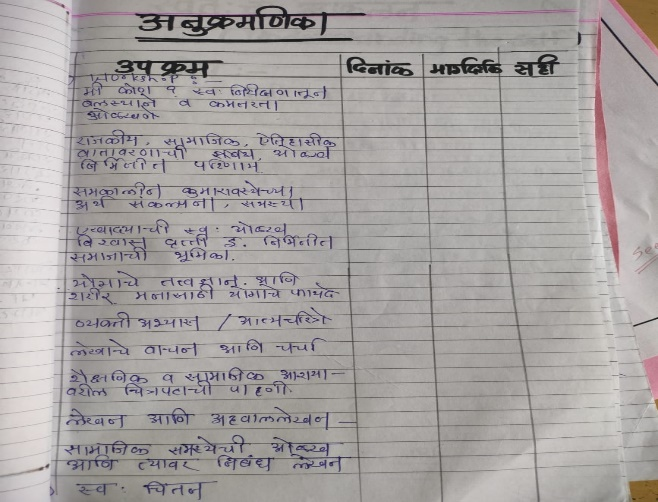 अनुक्रमणिका
उपक्रम दिनांक मार्गदर्शक सही
Workshop :-
मी कोण ? स्वः निरीक्षणातून
बलस्थाने व कमतरता
ओळखणे
राजकीय, सामाजिक, ऐतिहासीक
वातावरणाची संबंध, ओळख
निर्मितीत परिणाम
समकालीन कुमारावस्थेच्या
अर्थ संकल्पना, समस्या
एखाद्याची स्वः ओळख
विश्वास वृत्ती इ. निर्मितीत
समाजाची भूमिका.
योगाचे तत्वज्ञान आणि
शरीर मनासाठी योगाचे फायदे
व्यक्ती अभ्यास / आत्मचरित्रे
लेखाचे वाचन आणि चर्चा
शैक्षणिक व सामाजिक आशया-
वरील चित्रपटाची पाहणी.
लेखन आणि अहवाललेखन
सामाजिक समस्येची ओळख
आणि त्यावर निबंध लेखन
स्वः चिंतन